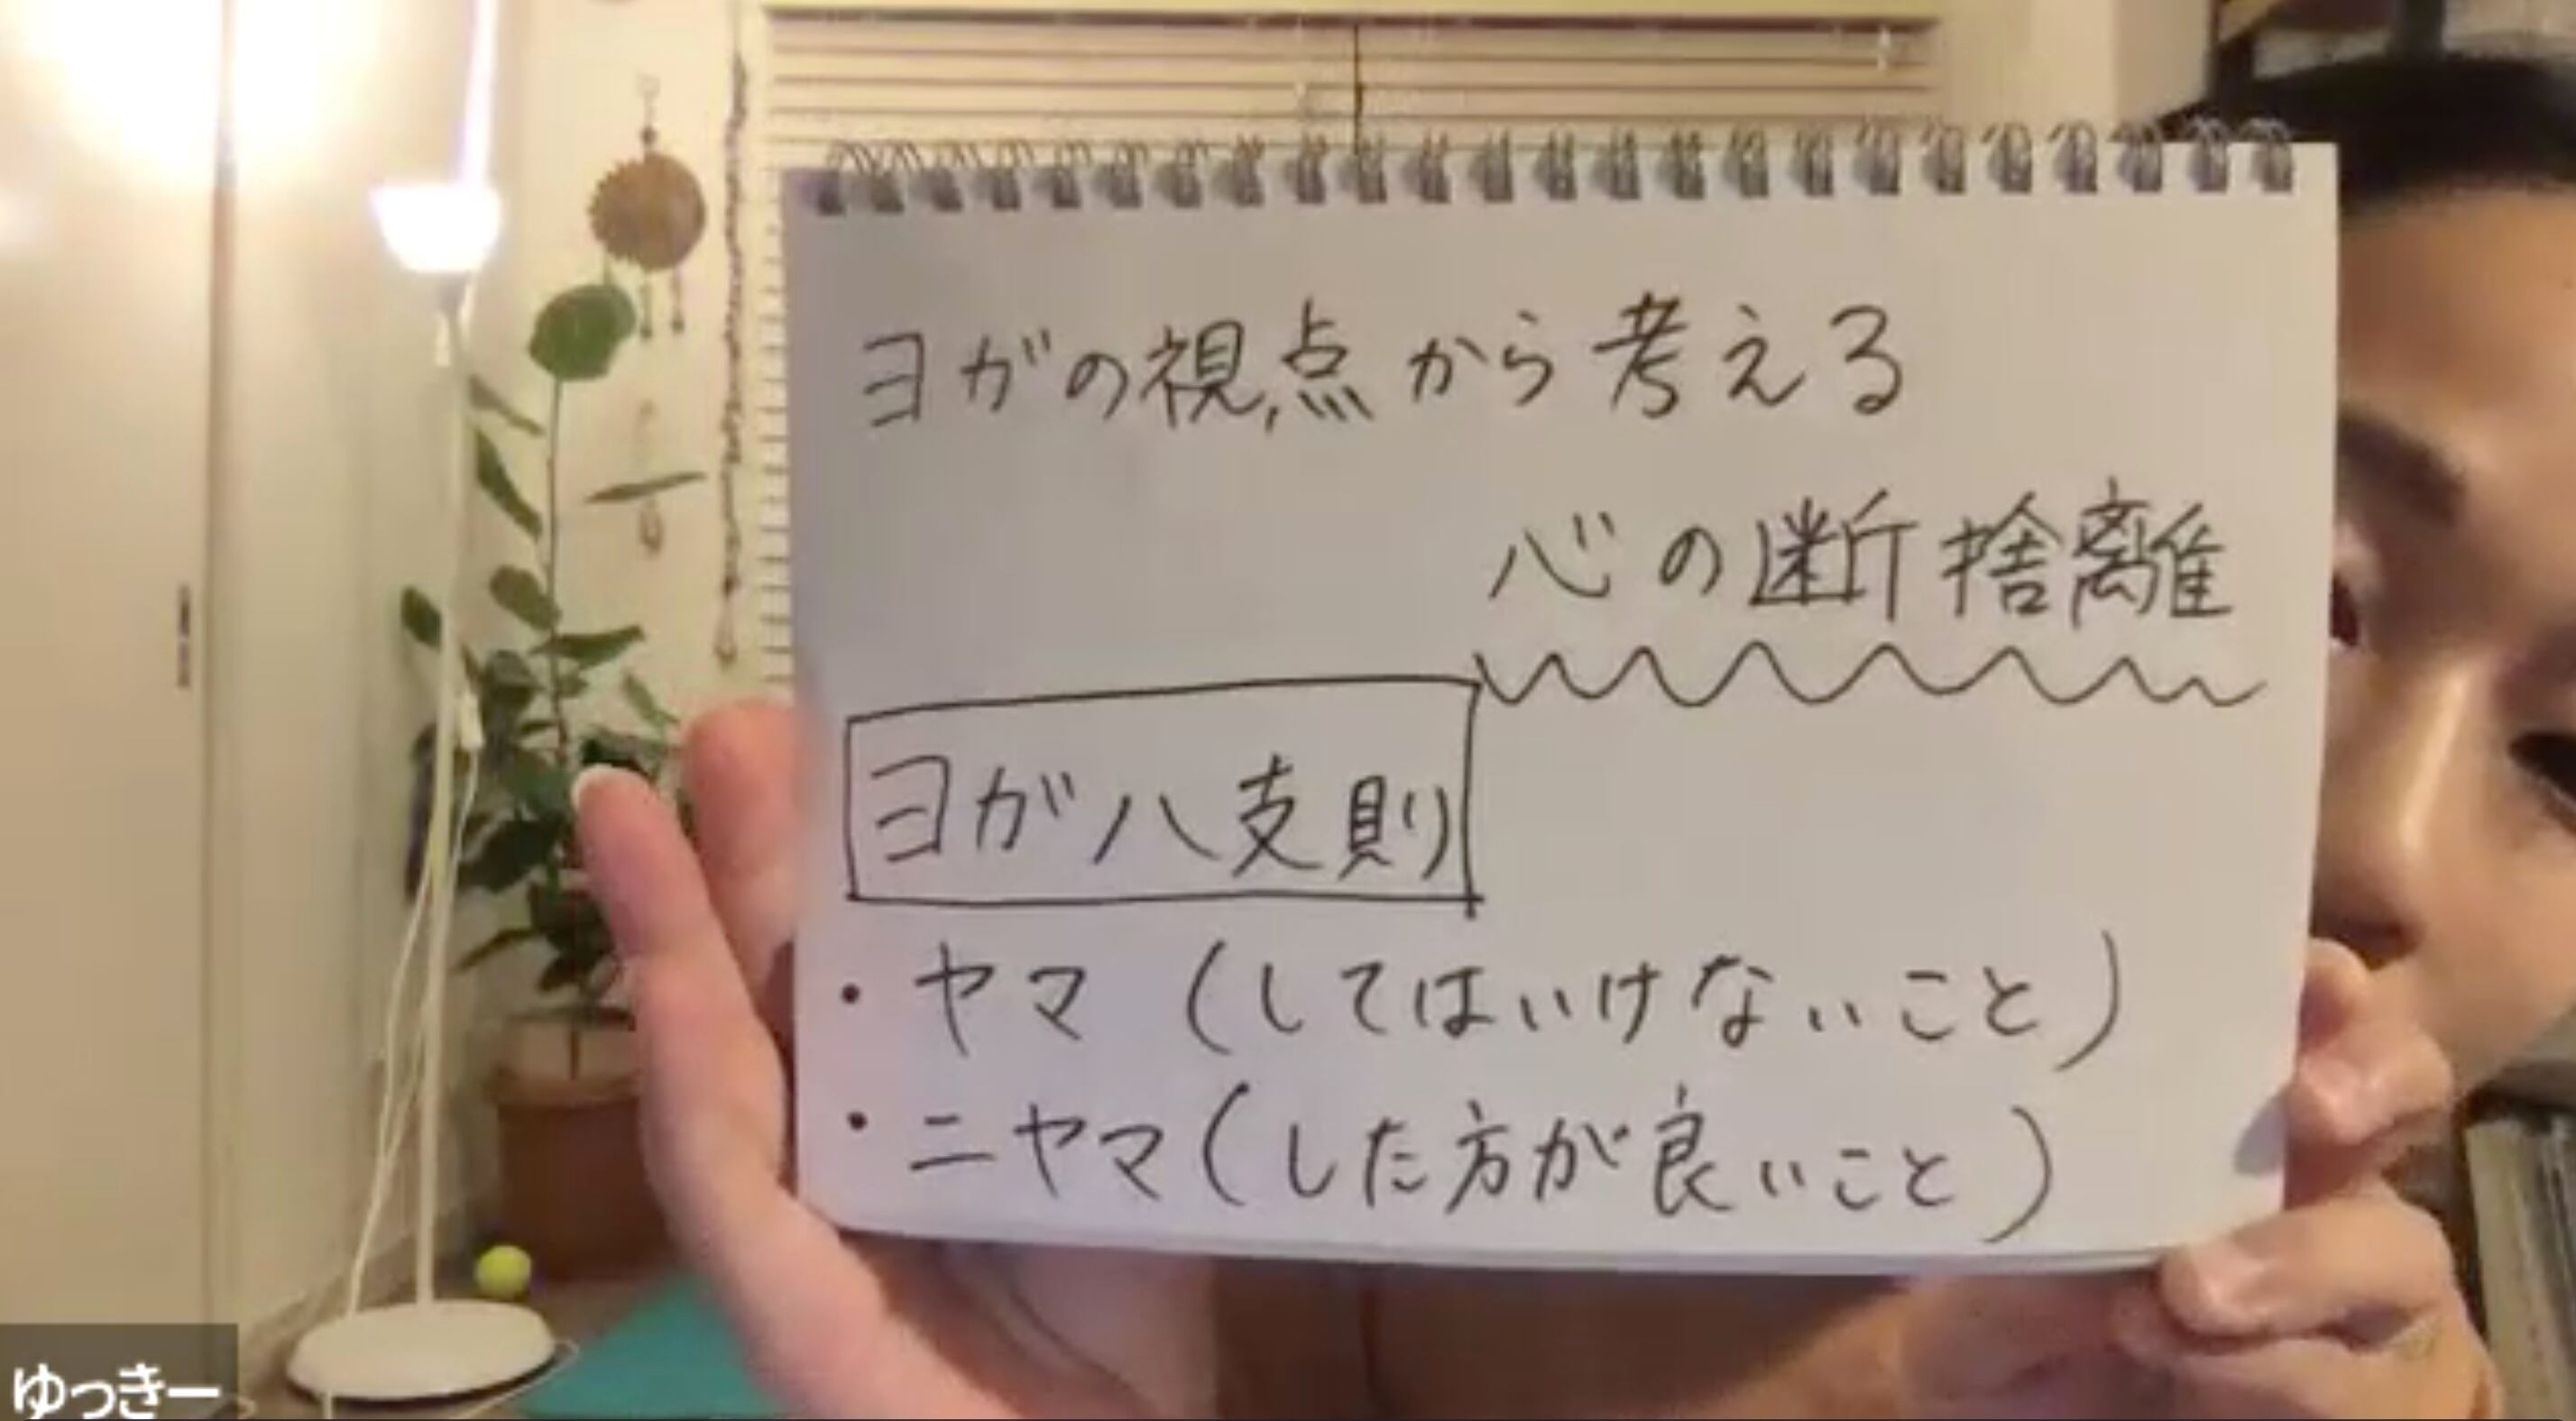 ヨガの視点から考える
心の断捨離
ヨガ八支則
・ヤマ (してはいけないこと)
・ニヤマ(した方が良いこと)
ゆっきー